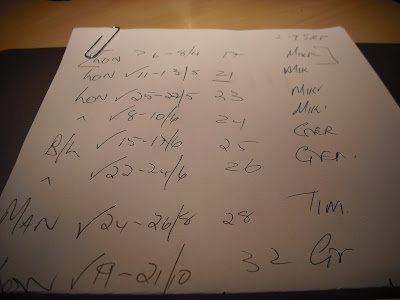 LON 26-8/4 17 MIKE
LON √11-13/5 21 MIK
LON √25-27/5 23 MIKE
" √8-10/6 24 MIKE
B/h √15-17/6 25 GER
" √22-24/6 26
MAN √24-26/8 28 TIM.
LON √19-21/10 32 Gr